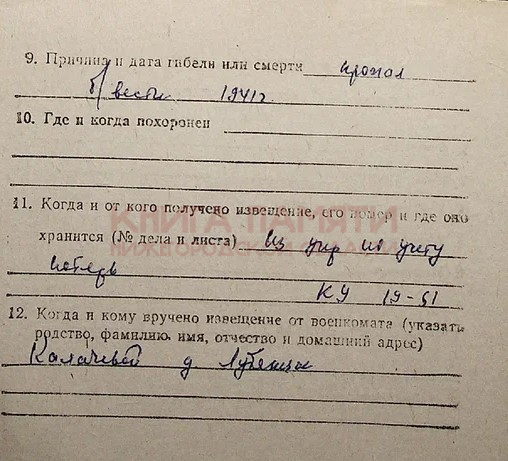 9. Причина и дата гибели или смерти пропал
б/вести 1941г
10. Где и когда похоронен
11. Когда и от кого получено извещение, его номер и где оно
КНИГА ПАМЯТИ
хранится (№ дела и листа) из упр по учету
НИЖЕГОРОДСКОЙ ОБЛАСТИ
потерь
КУ 19-61
12. Когда и кому вручено извещение от военкомата (указать
родство, фамилию, имя, отчество и домашний адрес)
Калачевой д